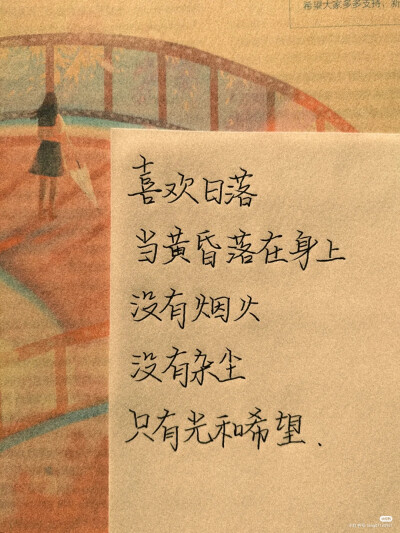 希望大家多多支持，新
喜欢日落
当黄昏落在身上
没有烟火
没有杂尘
只有光和希望.